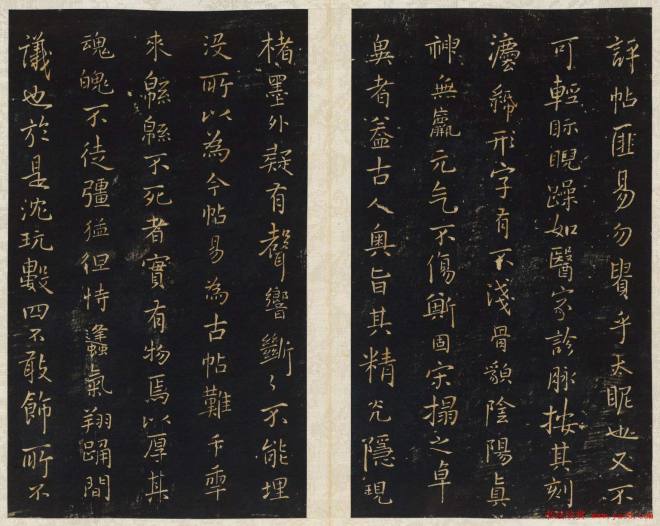 評帖匪易勿貴乎天眤也又不
可輕眎睨躁如醫家診脈按其刻
灋形字有不淺骨陰陽眞
神無羸元气不傷斷固宋搨之卓
者盖古人奧旨其精光隱現
楮墨外疑有聲響斷〻不能埋
没所以為今帖易為古帖難千年
來緜緜不死者實有物焉以厚其
魂魄不徒彊猛但恃蠭氣翔踊間
議也於是沈玩數四不敢飾所不